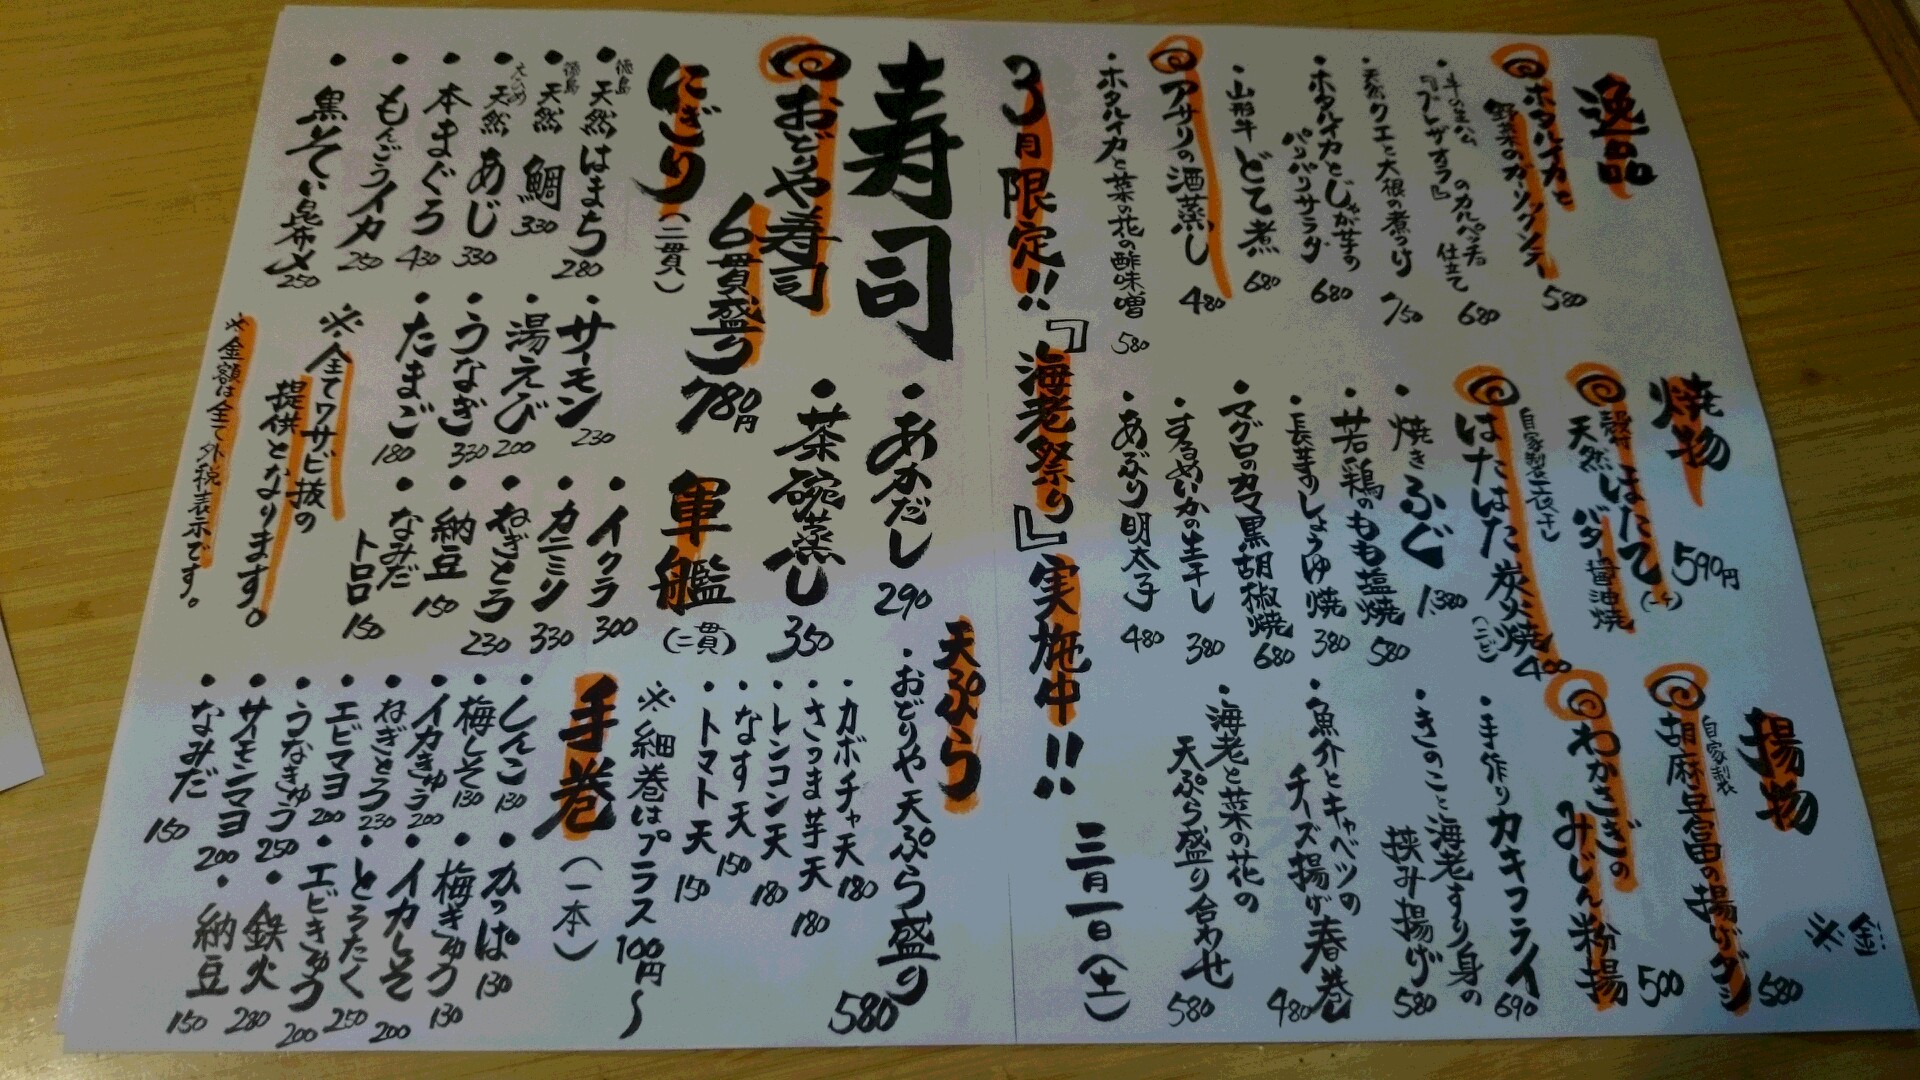 逸品
ホタルイカと
野菜のガーリックソテー 580
牛の生ハム
『ブレザオラ』
のカルパッチョ
仕立て 680
・天然クエと大根の煮つけ 750
・ホタルイカとじゃが芋の
パリパリサラダ 680
・山形牛どて煮 680
アサリの酒蒸し 480
・ホタルイカと菜の花の酢味噌 580
焼物
殻付ほたて(一ケ) 590円
天然
バター醤油焼
自家製一夜干し
はたはた炭火焼(二ビ) 400
・焼きふぐ 1380
・若鶏のもも塩焼 580
・長芋すしょうゆ焼 380
・マグロのカマ黒胡椒焼 680
・するめいかの生干し 380
・あぶり明太子 480
揚物
自家製
胡麻豆富の揚げダシ 580
わかさぎの
みじん粉揚 500
・手作りカキフライ 690
・きのこと海老すり身の
挟み揚げ 580
・魚介とキャベツの
チーズ揚げ春巻 480
・海老と菜の花の
天ぷら盛り合わせ 580
※金
3月限定!!『海老祭り』実施中!!
三月一日(土)
寿司
・あかだし 290
・茶碗蒸し 350
おどりや寿司
6貫盛り 780円
天ぷら
・おどりや天ぷら盛り 580
・カボチャ天 180
・さつま芋天 180
・レンコン天 180
・なす天 150
・トマト天 150
にぎり(二貫)
・徳島天然はまち 280
・徳島天然鯛 330
・えひめ天然あじ 330
・本まぐろ 430
・もんごうイカ 250
・黒そい昆布〆 250
・サーモン 230
・湯えび 200
・うなぎ 330
・たまご 180
軍艦(二貫)
・イクラ 300
・カニミソ 330
・ねぎとろ 230
・納豆 150
・なみだ
トロロ 150
※全てワサビ抜の
提供となります。
※金額は全て外税表示です。
手巻(一本)
※細巻はプラス100円〜
・しんこ 130
・梅しそ 130
・イカきゅう 200
・ねぎとろ 230
・エビマヨ 200
・うなきゅう 250
・サーモンマヨ 200
・なみだ 150
・かっぱ 130
・梅きゅう 130
・イカしそ 200
・とろたく 250
・エビきゅう 200
・鉄火 280
・納豆 150